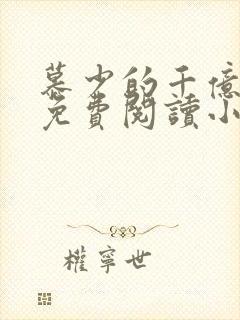 慕少的千億
免費閱讀小
權寧世